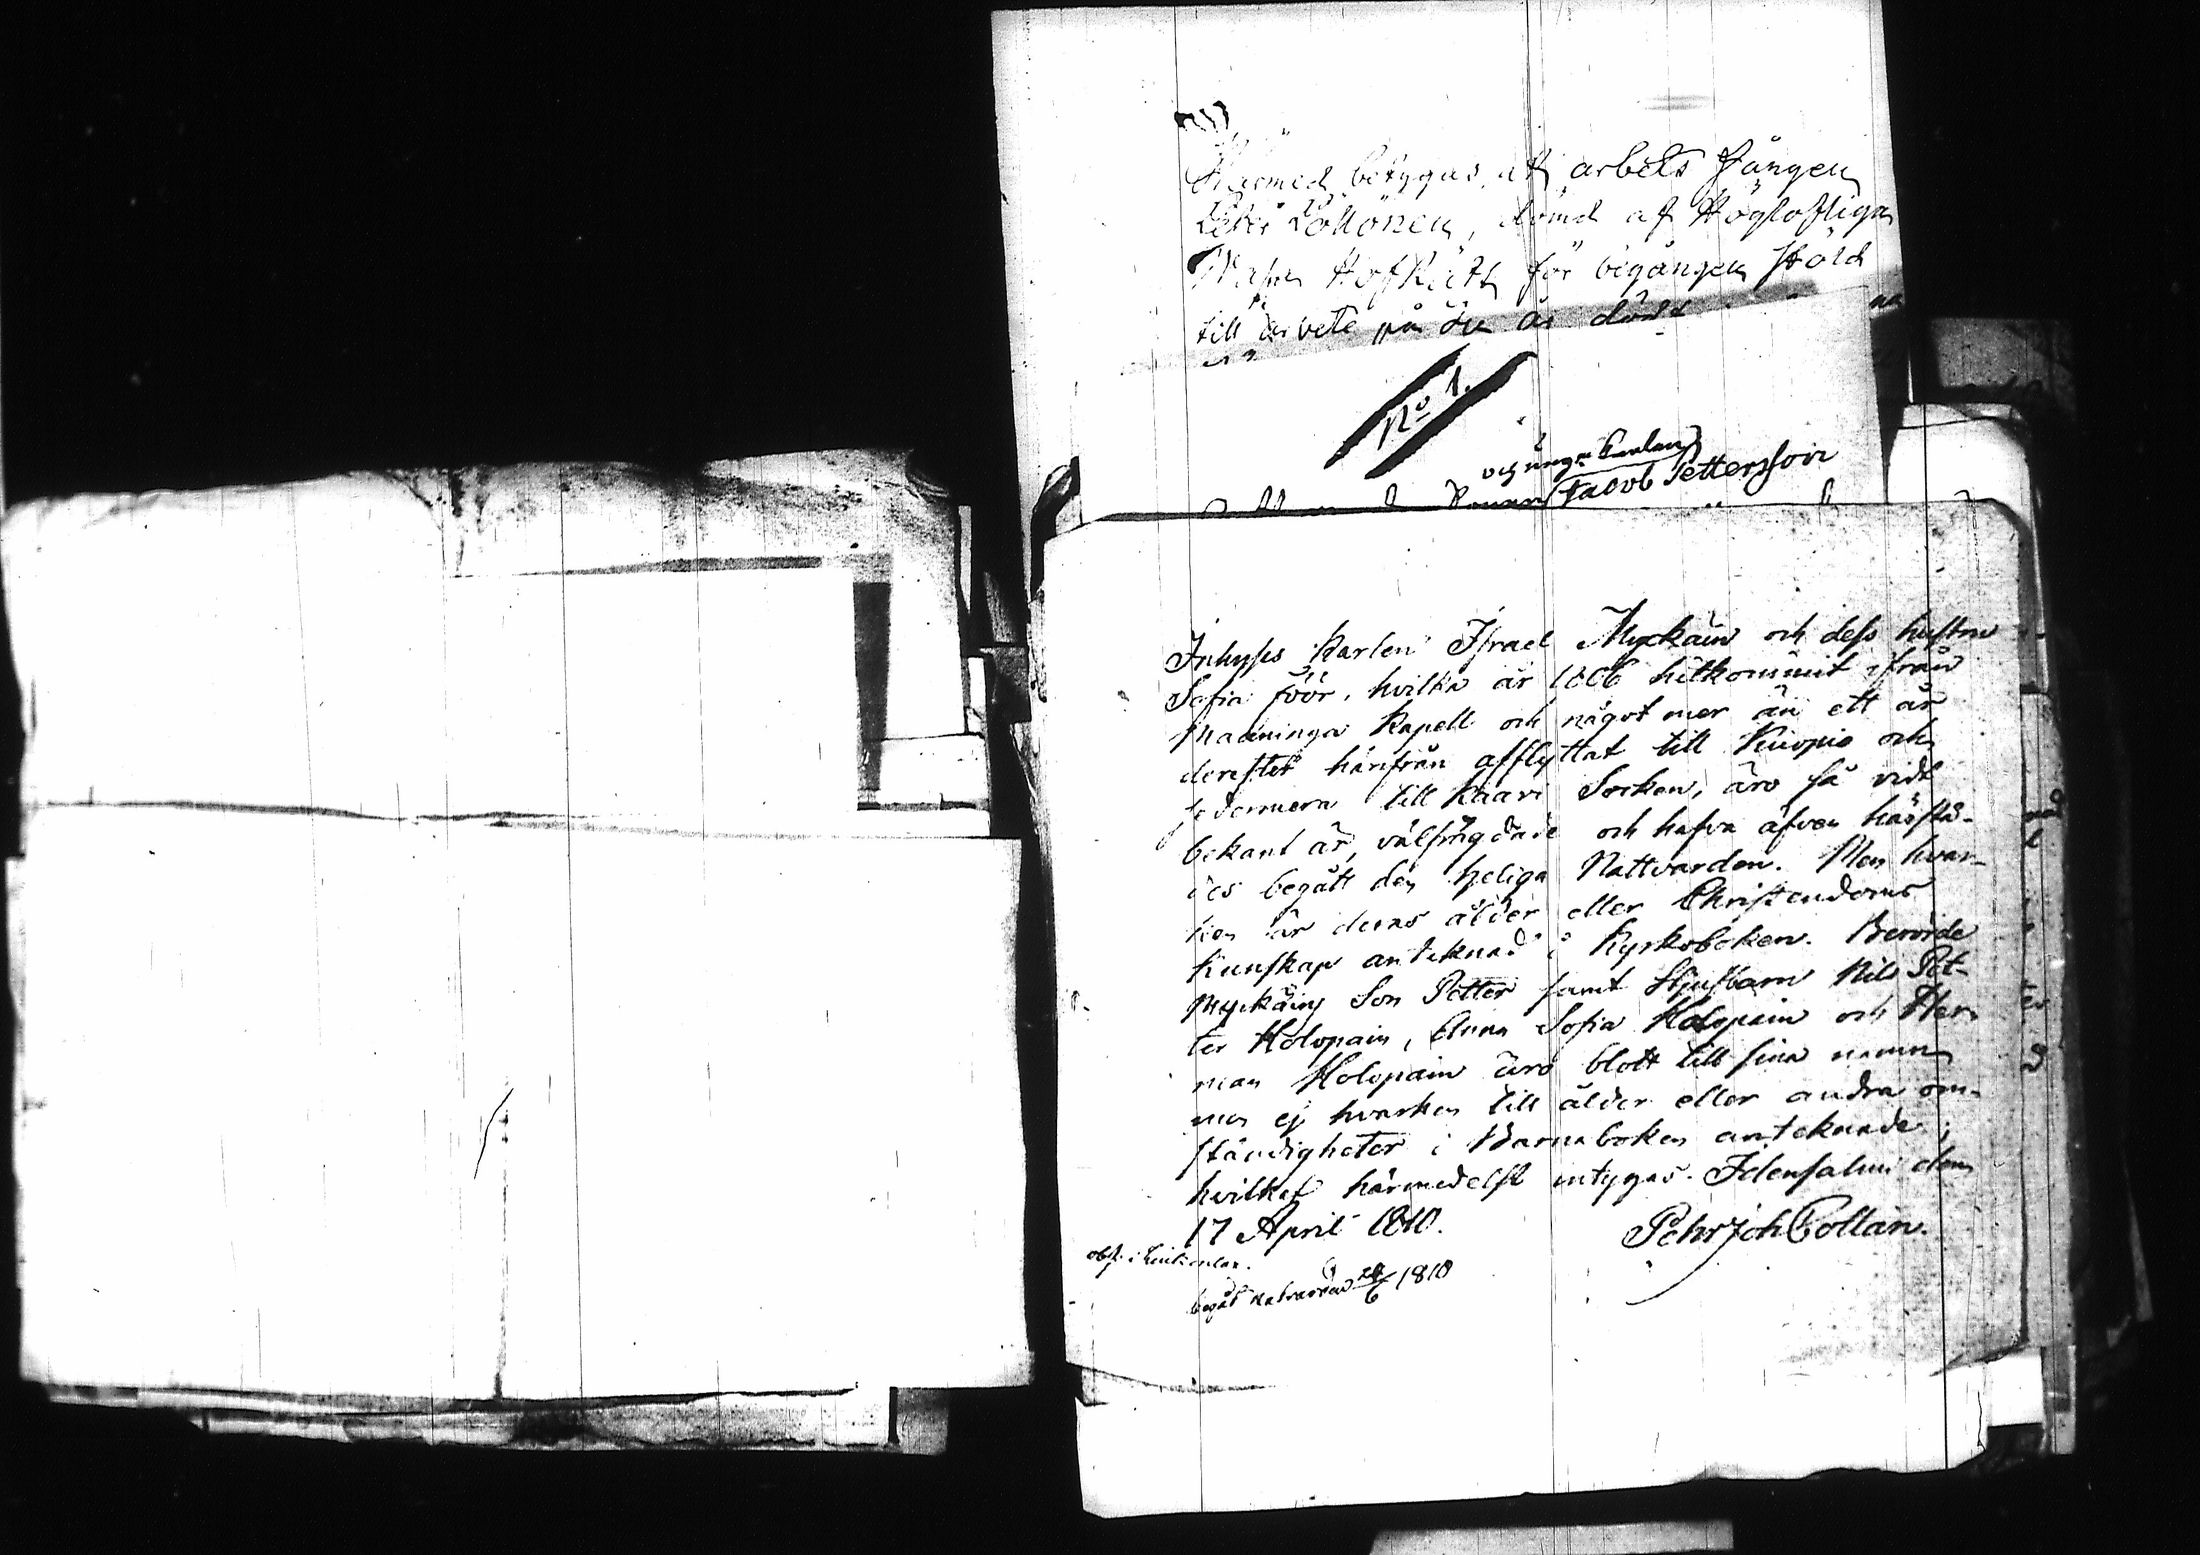 Härmed betygas, att arbets fången
Petter Löttönen, dömd af Höglofliga
Wasa HofRätt för begången stöld
till arbete på
No 1.
och unga Karlen
Jacob Pettersson
Inhyses Karlen Israel Myckäin och dess hustru
Sofia föör, hvilka år 1806 hitkommit ifrån
Maaninga Kapell och något mer än ett år
derefter härifrån afflyttat till Kuopio och
sedermera till Kaavi Socken, äro så vidt
bekant är, välfrägdade och hafva äfven härstä-
des begått den heliga Nattvarden. Men hvar-
ken är deras ålder eller Christendoms
Kunskap anteknad i Kyrkoboken. Berörde
Myckäins Son Petter samt Stjufbarn Nils Pet-
ter Holopain, Anna Sofia Holopain och Her-
man Holopain äro blott till sina namn
men ej hvarken till ålder eller andra om-
ständigheter i Barnaboken anteknade;
hvilket härmedelst intygas. Idensalmi den
17 April 1810.
Pehr Joh Collan.
obs. i
begåt natvarden 24/6 1810